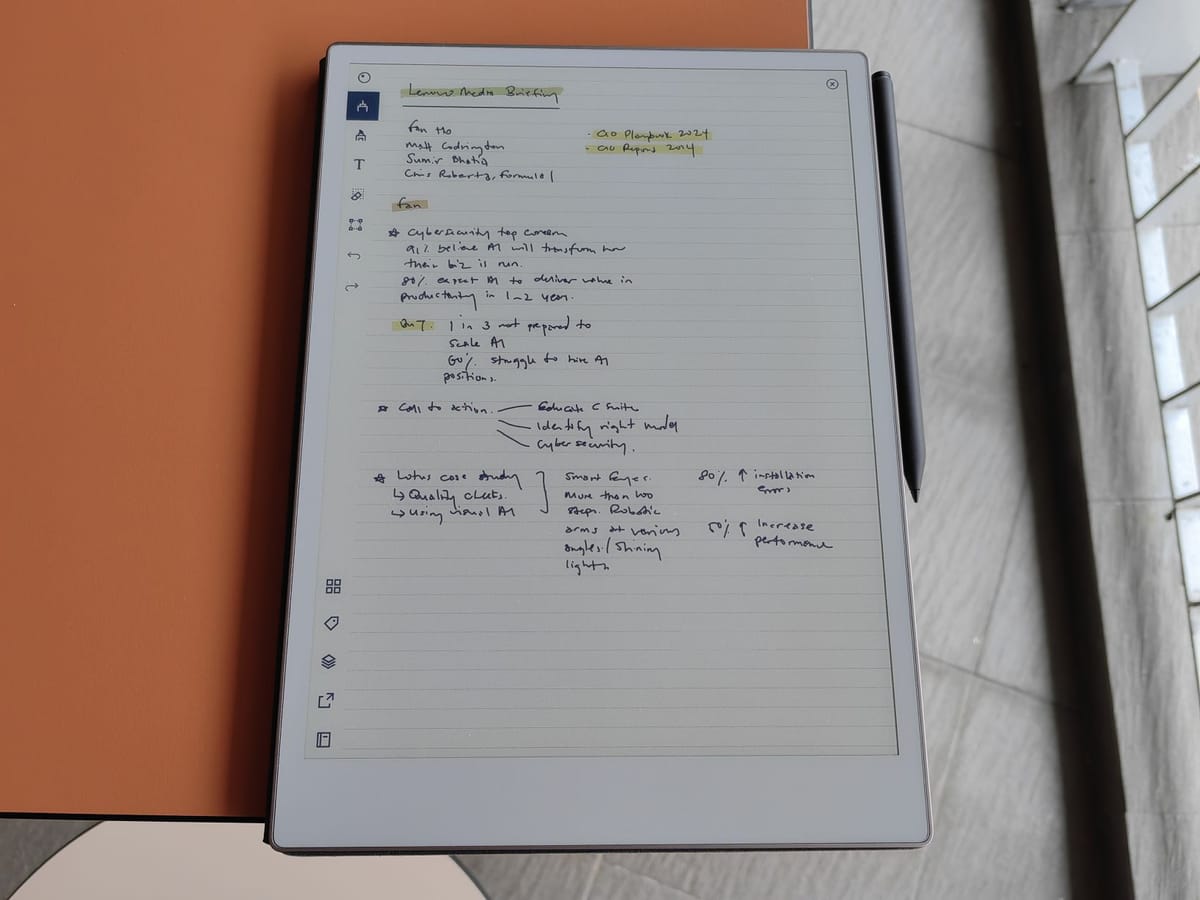 Lenovo Media Briefing
Fan Ho
Matt Codrington
Sumir Bhatia
Chris Roberts, Formula 1
- CIO Playbook 2024
- CIO Report 2014
Fan
☆ Cybersecurity top concern
91% believe AI will transform how
their biz is run.
80% expect AI to deliver value in
productivity in 1-2 year.
1 in 3 not prepared to
scale AI
60% struggle to hire AI
positions.
☆ Call to action.
Educate C Suite
Identify right model
Cybersecurity.
☆ Lotus case study
↳ Quality checks.
↳ Using visual AI
More than
steps. Robotic
arms at various
angles / Shining
lights
80% ↑ installation
errors
50% ↑ Increase
performance
T